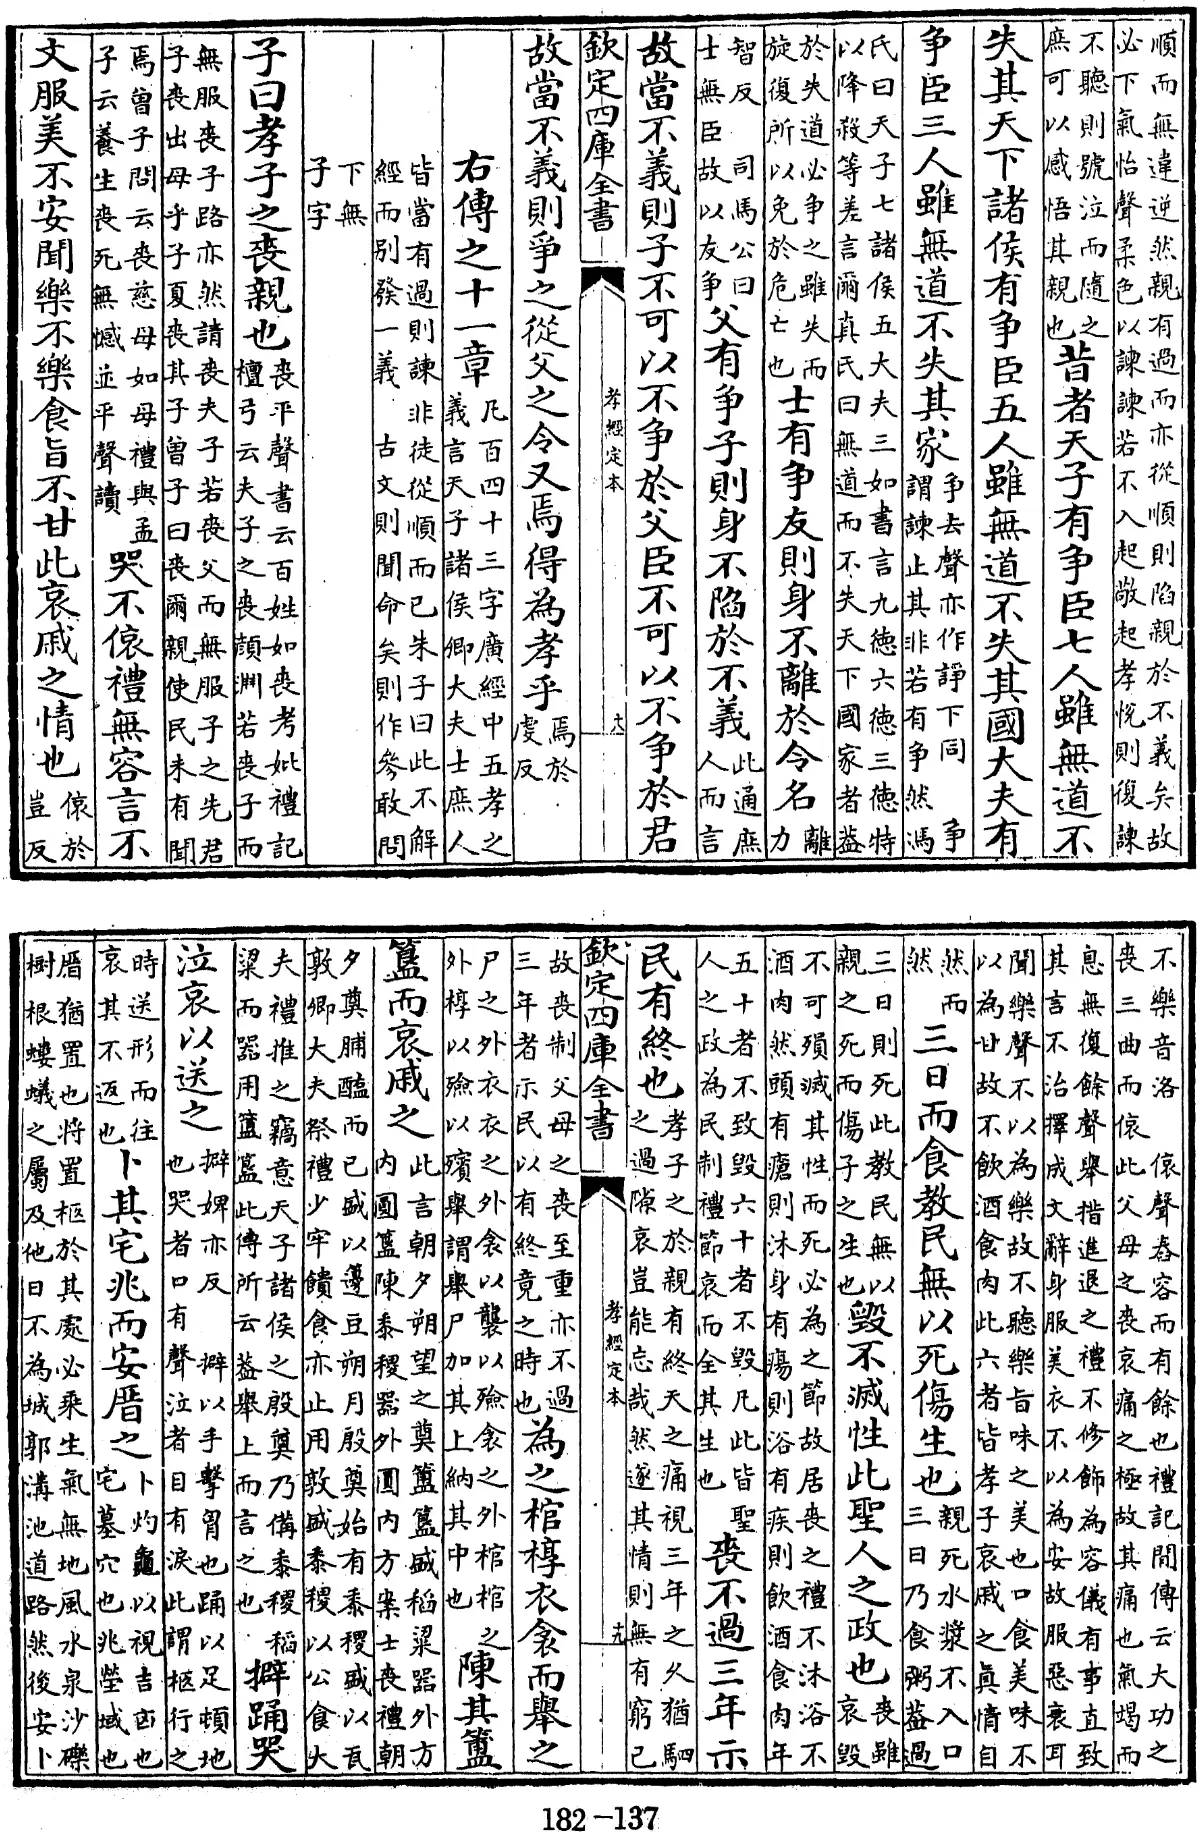 順而無違逆然親有過而亦從順則陷親於不義矣故
必下氣怡聲柔色以諫諫若不入起敬起孝悅則復諫
不聽則號泣而隨之
庶可以感悟其親也
昔者天子有争臣七人雖無道不
失其天下諸侯有争臣五人雖無道不失其國大夫有
争臣三人雖無道不失其家
争去聲亦作諍下同　争
謂諫止其非若有争然馮
氏曰天子七諸侯五大夫三如書言九徳六徳三徳特
以降殺等差言爾真氏曰無道而不失天下國家者葢
於失道必争之雖失而
旋復所以免於危亡也
士有争友則身不離於令名
離
力
智反　司馬公曰
士無臣故以友争
父有争子則身不陷於不義
此通庶
人而言
故當不義則子不可以不争於父臣不可以不争於君
欽定四庫全書
孝經定本
十八
故當不義則爭之從父之令又焉得為孝乎
焉於
虔反
右傳之十一章
凡百四十三字廣經中五孝之
義言天子諸侯卿大夫士庶人
皆當有過則諫非徒從順而已朱子曰此不解
經而別發一義　古文則聞命矣則作參敢問
下無
子字
子曰孝子之喪親也
喪平聲書云百姓如喪考妣禮記
檀弓云夫子之喪顔淵若喪子而
無服喪子路亦然請喪夫子若喪父而無服子之先君
子喪出母乎子夏喪其子曾子曰喪爾親使民未有聞
焉曾子問云喪慈母如母禮與孟
子云養生喪死無憾並平聲讀
哭不偯禮無容言不
文服美不安聞樂不樂食旨不甘此哀戚之情也
偯於
豈反
不樂音洛　偯聲舂容而有餘也禮記間傳云大功之
喪三曲而偯此父母之喪哀痛之極故其痛也氣竭而
息無復餘聲舉措進退之禮不修飾為容儀有事直致
其言不治擇成文辭身服美衣不以為安故服惡衰耳
聞樂聲不以為樂故不聽樂旨味之美也口食美味不
以為甘故不飲酒食肉此六者皆孝子哀戚之真情自
然而
然
三日而食教民無以死傷生也
親死水漿不入口
三日乃食粥葢過
三日則死此教民無以
親之死而傷子之生也
毀不滅性此聖人之政也
喪雖
哀毀
不可殞滅其性而死必為之節故居喪之禮不沐浴不
酒肉然頭有瘡則沐身有瘍則浴有疾則飲酒食肉年
五十者不致毀六十者不毀凡此皆聖
人之政為民制禮節哀而全其生也
喪不過三年示
民有終也
孝子之於親有終天之痛視三年之久猶駟
之過隙哀豈能忘哉然遂其情則無有窮已
欽定四庫全書
孝經定本
十九
故喪制父母之喪至重亦不過
三年者示民以有終竟之時也
為之棺椁衣衾而舉之
尸之外衣衣之外衾以襲以殮衾之外棺棺之
外椁以殮以殯舉謂舉尸加其上納其中也
陳其簠
簋而哀戚之
此言朝夕朔望之奠簠簋盛稻粱器外方
内圓簋陳黍稷器外圓内方案士喪禮朝
夕奠脯醢而已盛以籩豆朔月殷奠始有黍稷盛以瓦
敦卿大夫祭禮少牢饋食亦止用敦盛黍稷以公食大
夫禮推之竊意天子諸侯之殷奠乃備黍稷稻
粱而器用簠簋此傳所云葢舉上而言之也
擗踊哭
泣哀以送之
擗婢亦反　擗以手擊胷也踊以足頓地
也哭者口有聲泣者目有淚此謂柩行之
時送形而往
哀其不返也
卜其宅兆而安厝之
卜灼龜以視吉凶也
宅墓穴也兆塋域也
厝猶置也将置柩於其處必乘生氣無地風水泉沙礫
樹根螻蟻之屬及他日不為城郭溝池道路然後安卜
182-137